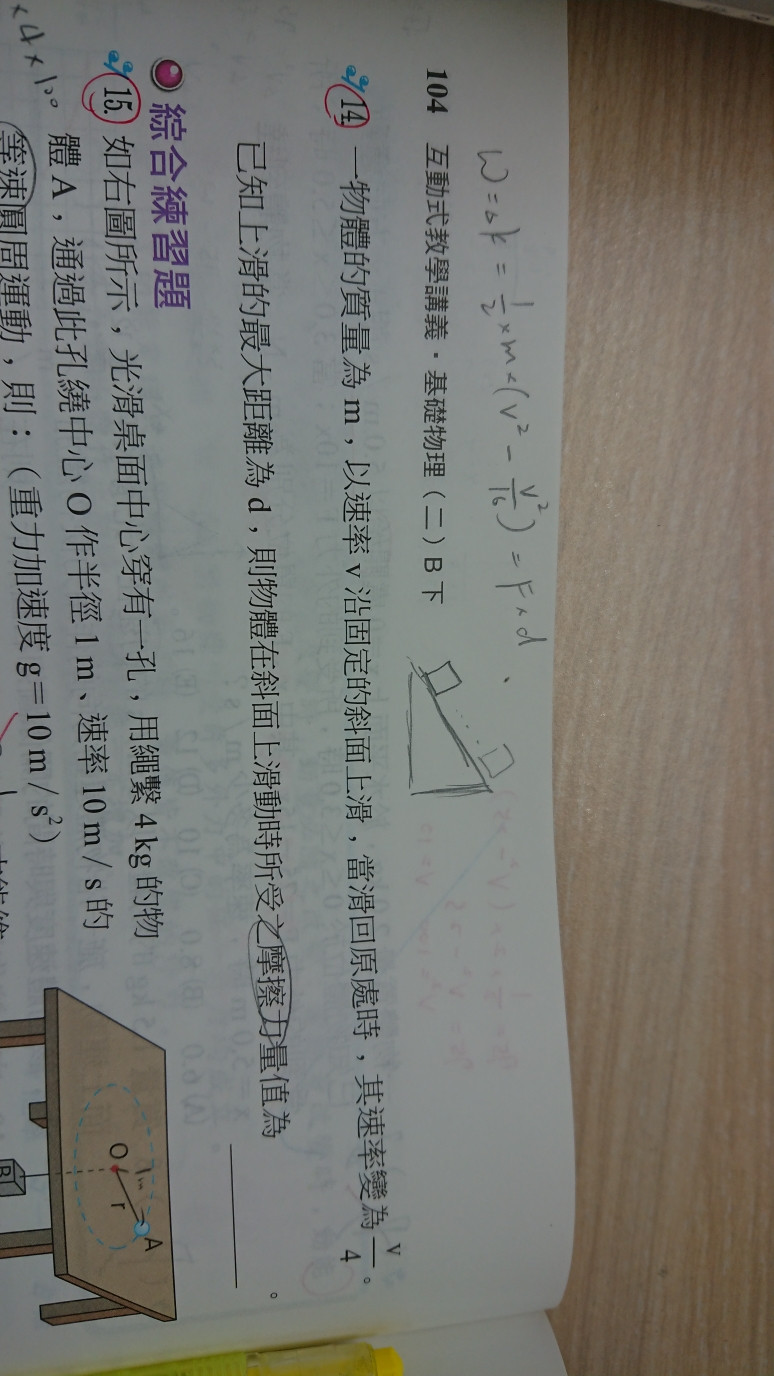 W=ΔK=1/2×m×(v²-v²/16)=F×d
104 互動式教學講義·基礎物理(二)B下
14. 一物體的質量為m,以速率v沿固定的斜面上滑,當滑回原處時,其速率變為v/4。
已知上滑的最大距離為d,則物體在斜面上滑動時所受之摩擦力量值為________。
綜合練習題
15. 如右圖所示,光滑桌面中心穿有一孔,用繩繫4kg的物
體A,通過此孔繞中心O作半徑1m、速率10m/s的
等速圓周運動,則:(重力加速度g=10m/s²)
×4×100
O
1m
r
A
B